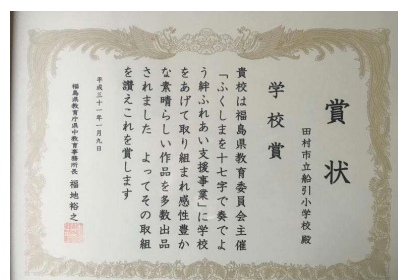 賞状
田村市立船引小学校殿
学校賞
貴校は福島県教育委員会主催
「ふくしまを十七字で奏でよ
う絆ふれあい支援事業」に学校
をあげて取り組まれ感性豊か
な素晴らしい作品を多数出品
されました　よってその取組
を讃えこれを賞します
平成三十一年一月九日
福島県教育庁県中教育事務所長　福地裕之